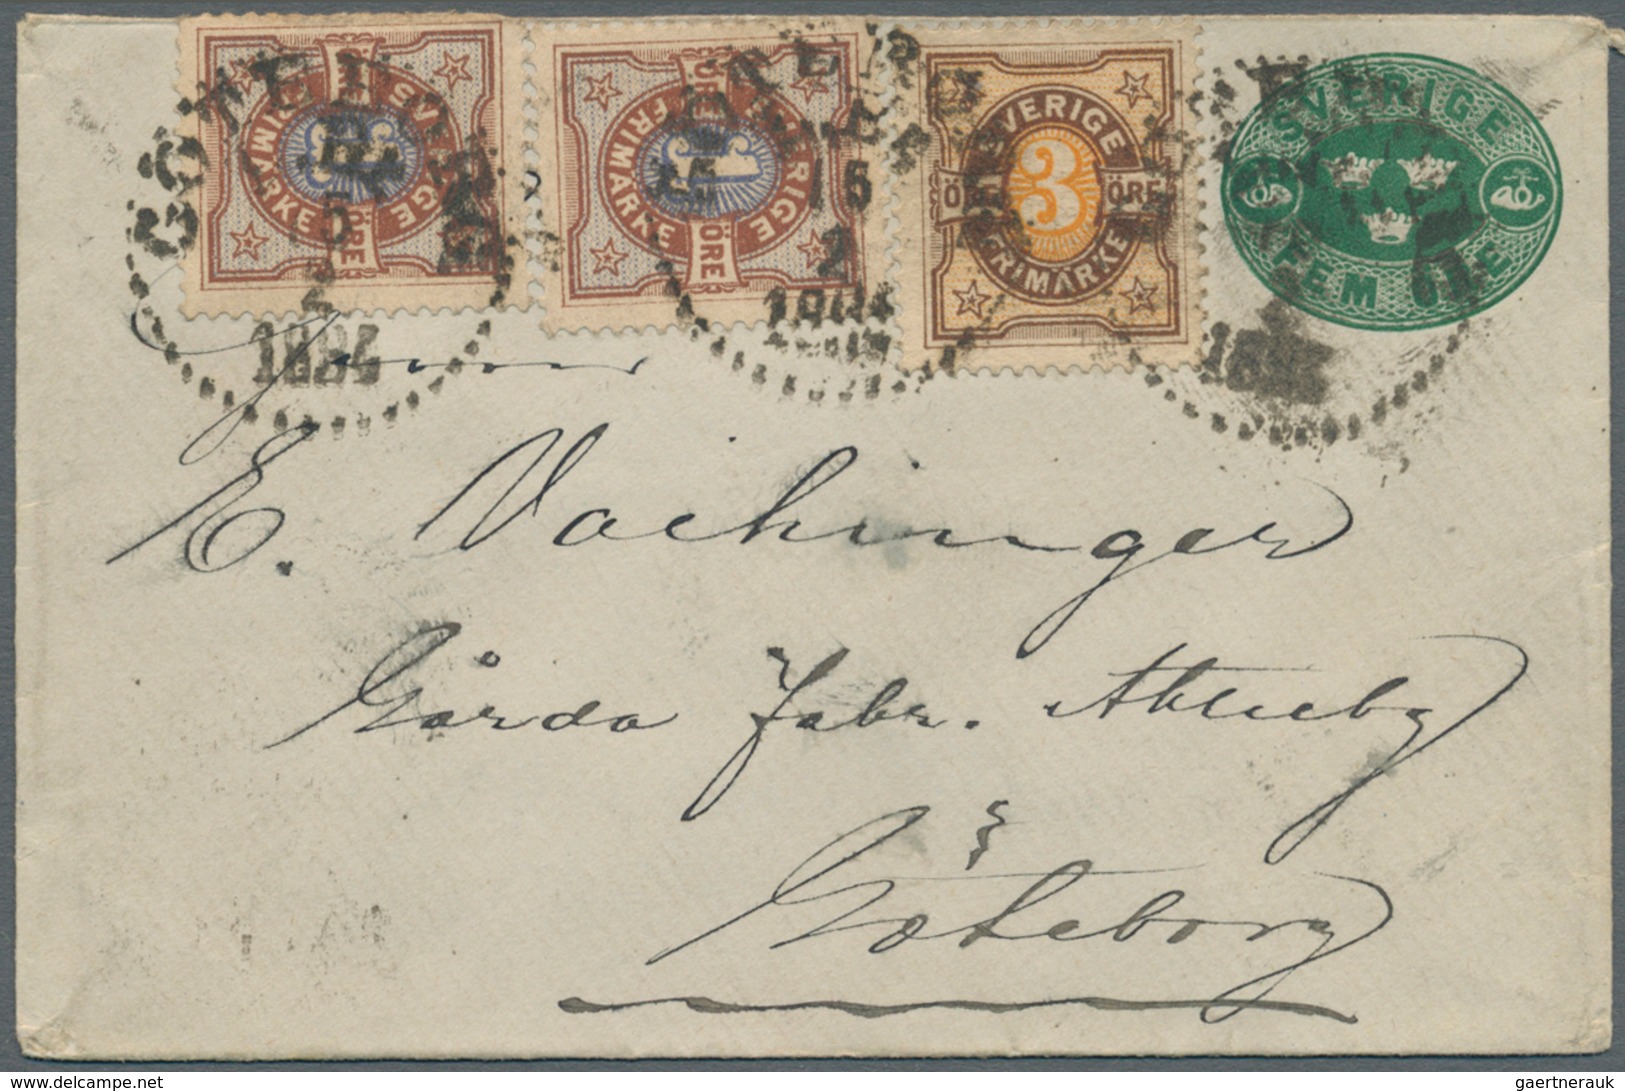 SVERIGE 1 ÖRE FRIMÄRKE ÖRE
SVERIGE 1 ÖRE FRIMÄRKE ÖRE
SVERIGE 3 ÖRE ÖRE FRIMÄRKE
SVERIGE FEM ÖRE
GÖTEBORG
15
2
1894
E. Vachinger
Gårda Fabr. Aktieb
Göteborg
gaertnerauk